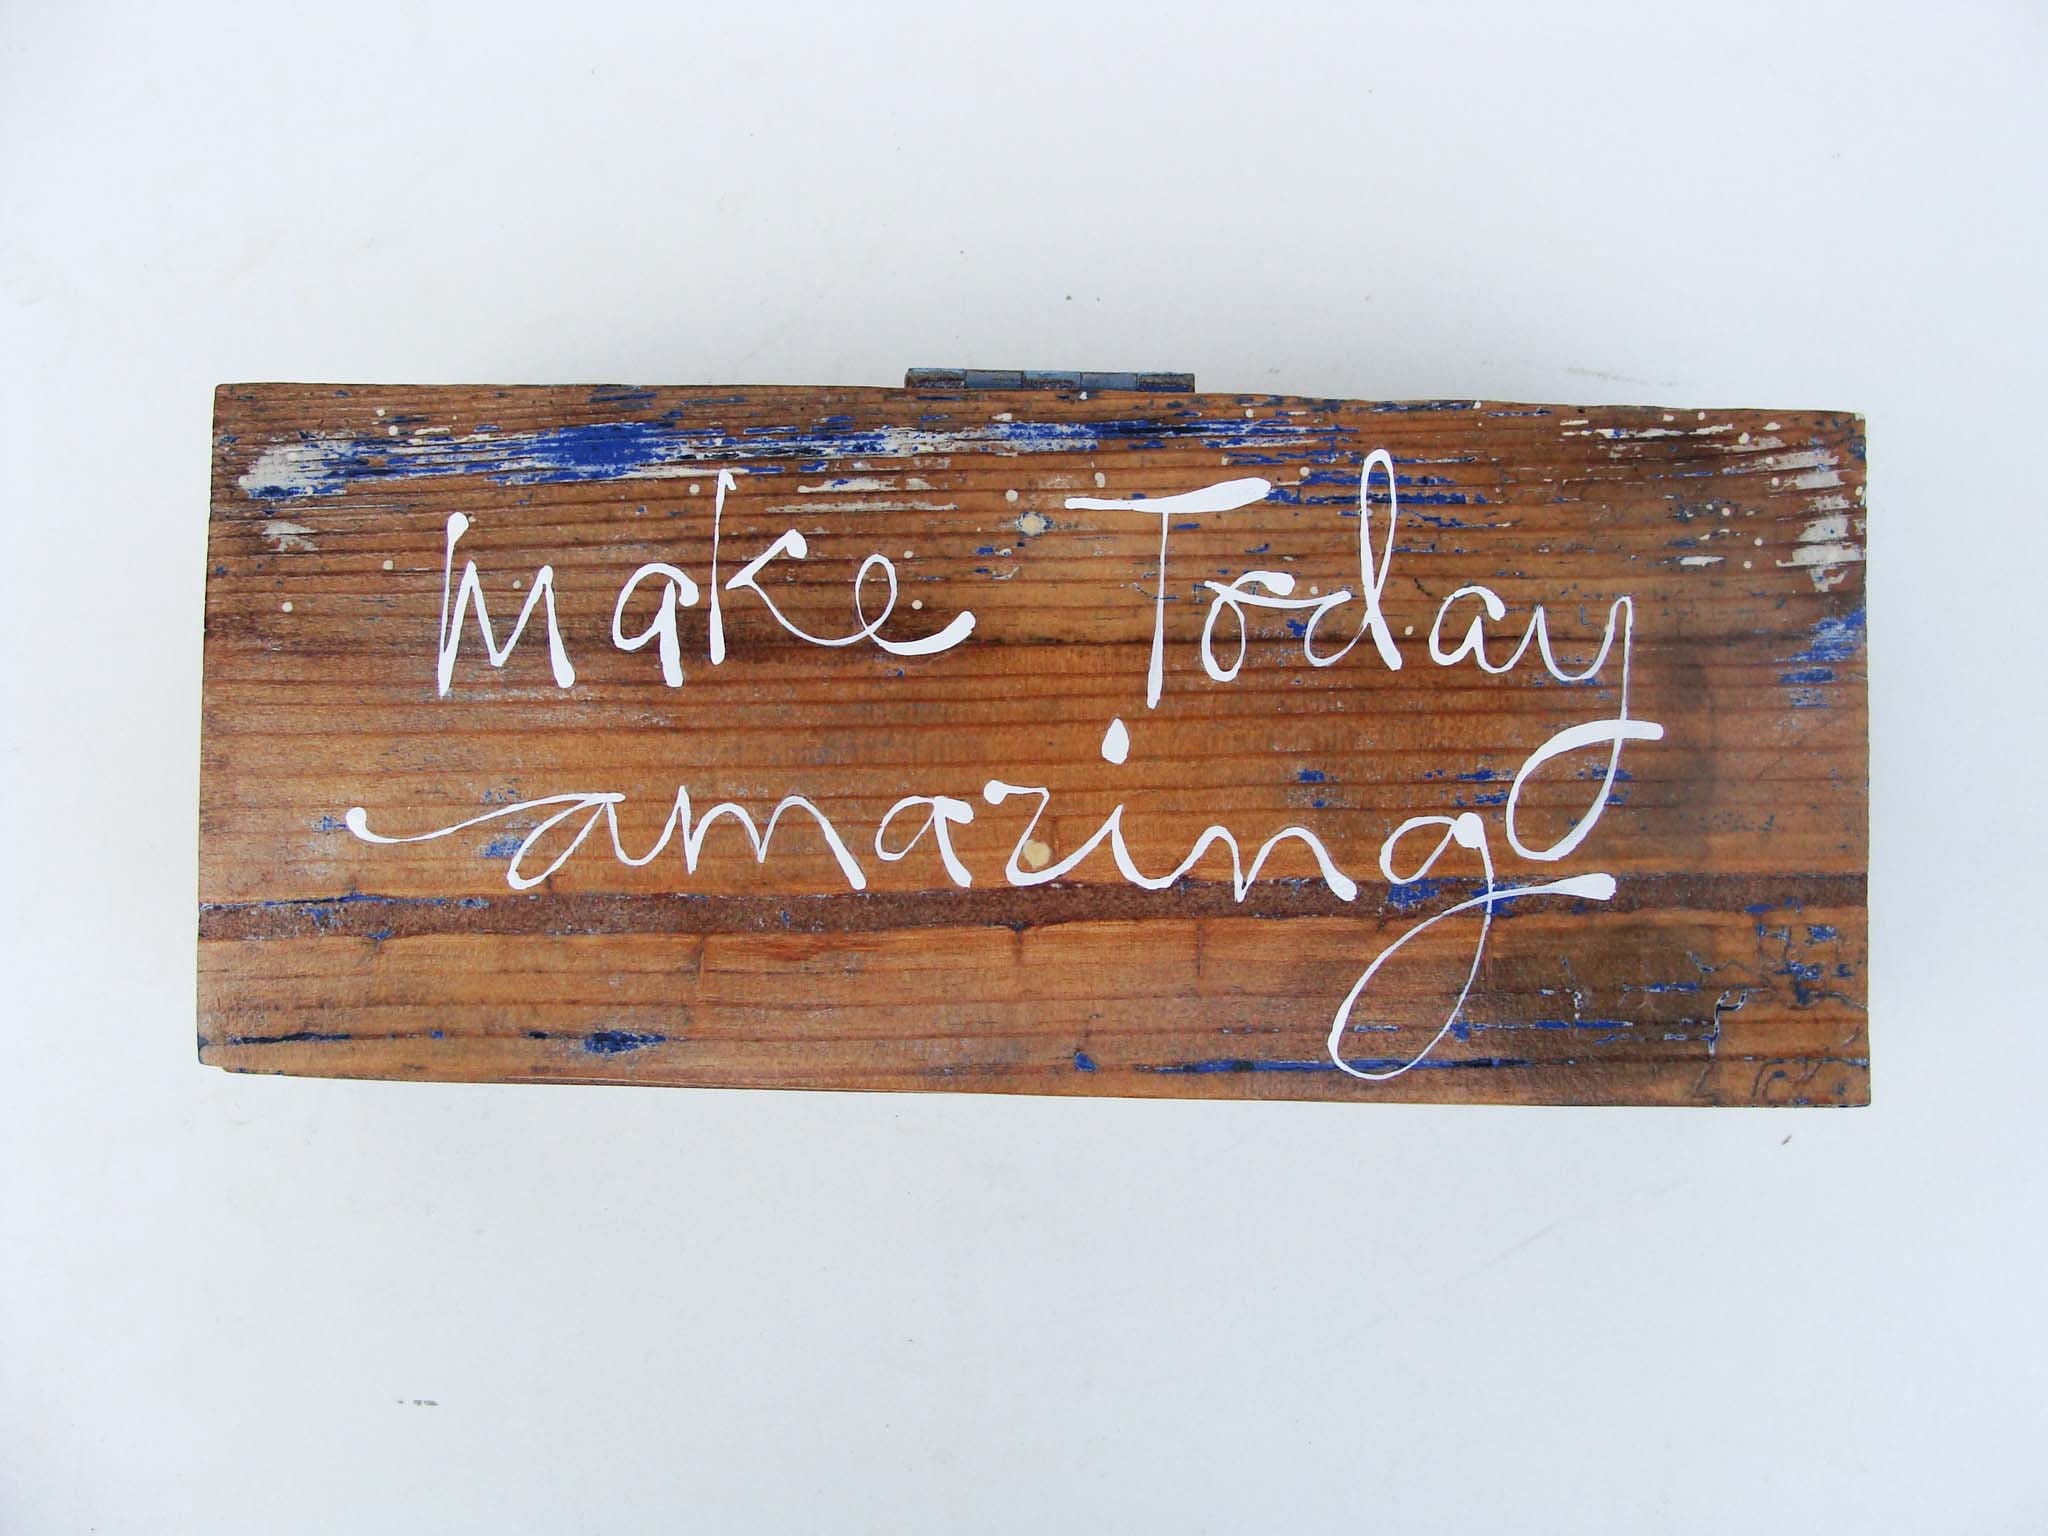 make Today
amazing